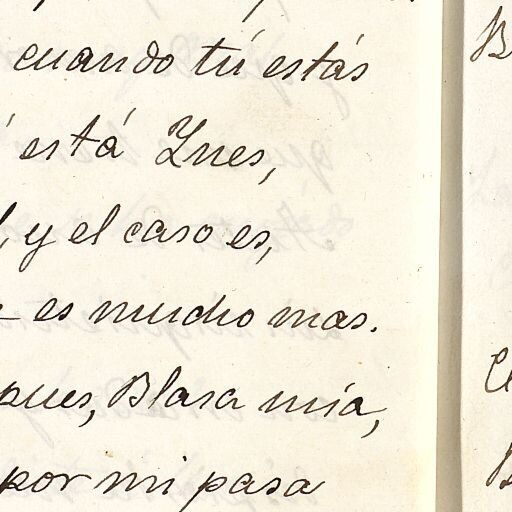 cuando tú estás
está Ynes,
y el caso es,
es mucho mas.
pues, Blasa mía,
por mi pasa